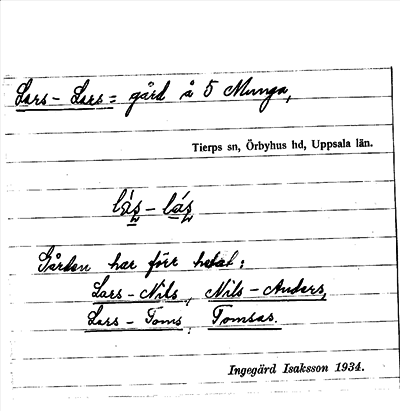 Lars-Lars = gård å 5 Munga,
Tierps sn, Örbyhus hd, Uppsala län.
lás-lás
Gården har förr hetat:
Lars-Nils, Nils-Anders,
Lars-Toms, Tomsas.
Ingegärd Isaksson 1934.